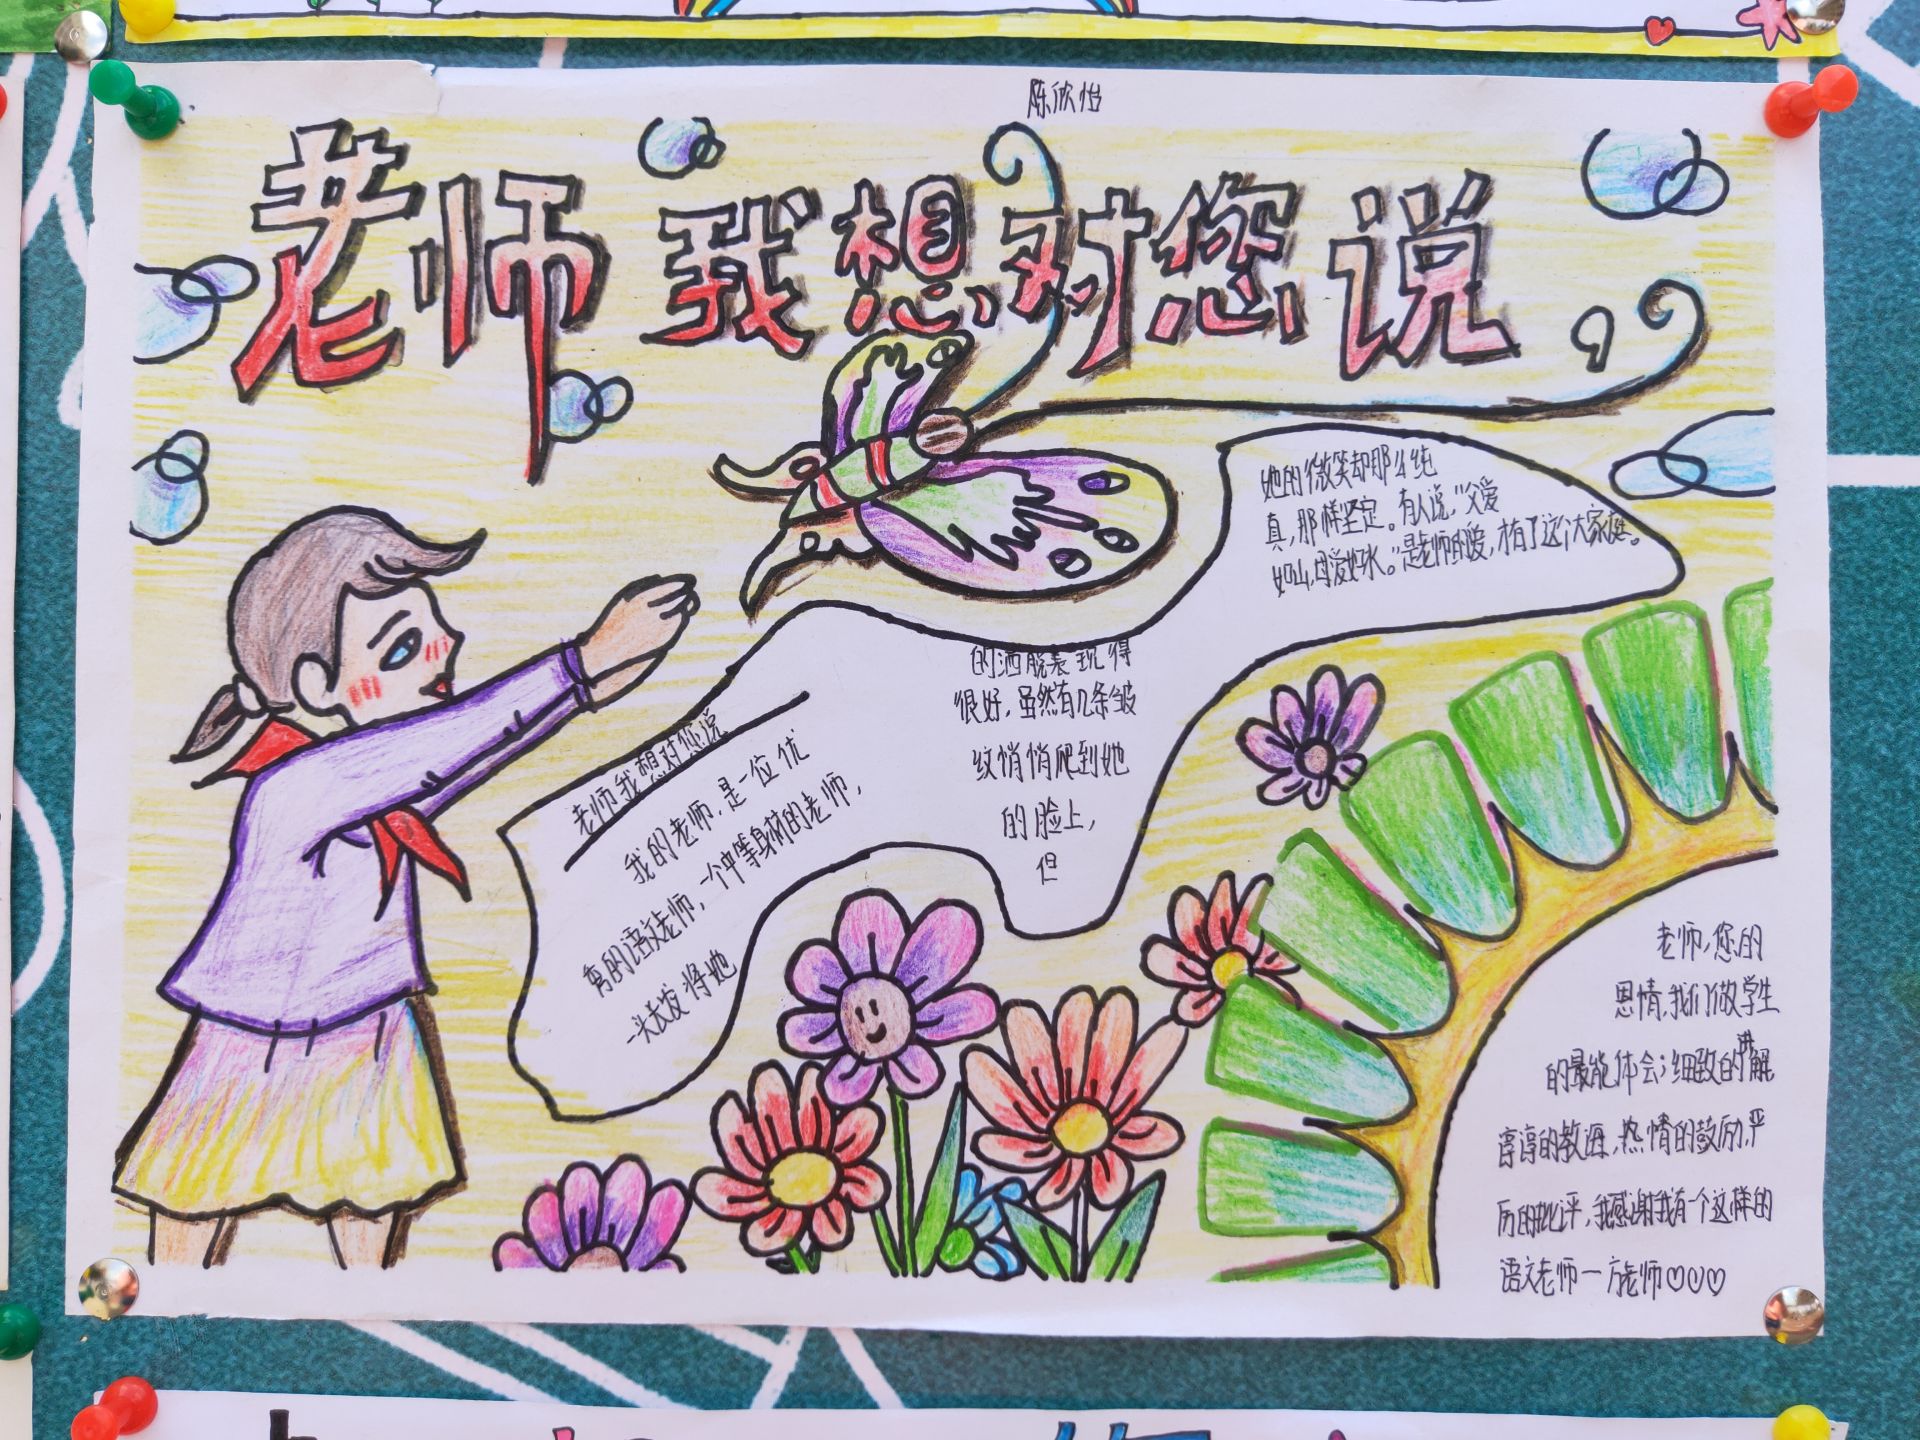 陈欣怡
老师我想对您说
老师我想对您说
我的老师,是一位优
秀的语文老师,一个中等身材的老师,
一头长发将她
的洒脱表现得
很好,虽然有几条皱
纹悄悄爬到她
的脸上,
但
她的微笑却那么纯
真,那样坚定。有人说,“父爱
如山,母爱如水。”是老师的爱,才有了这个大家庭。
老师,您的
恩情,我们做学生
的最能体会;细致的讲解
谆谆的教诲,热情的鼓励,严
历的批评,我感谢我有一个这样的
语文老师一方老师♡♡♡